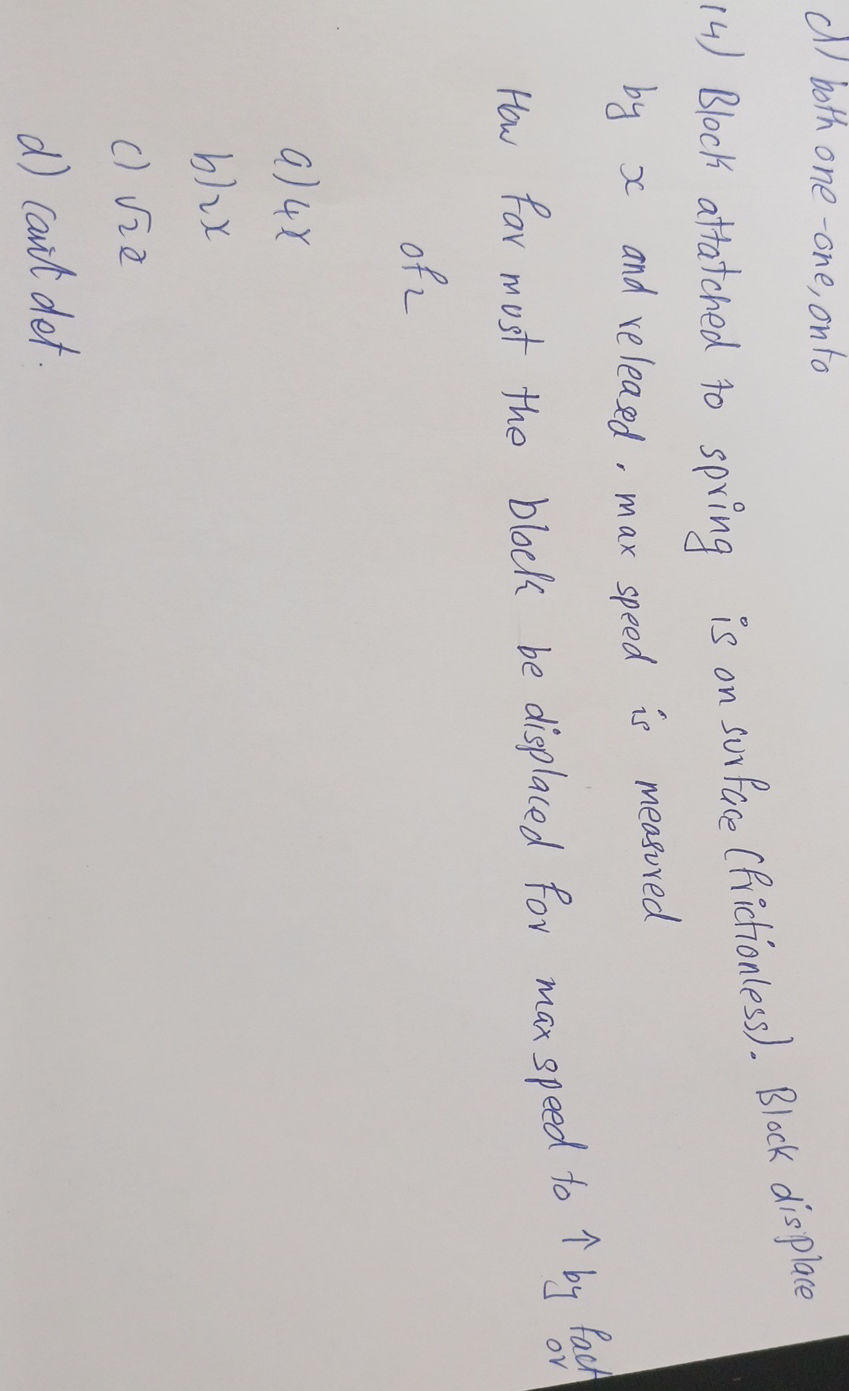 d) both one-one, onto
14) Block attatched to spring is on surface (frictionless). Block displace
by x and released, max speed is measured
How far must the block be displaced for max speed to ↑ by fact
or
of 2
a) 4x
b) 2x
c) √2 x
d) can't det.